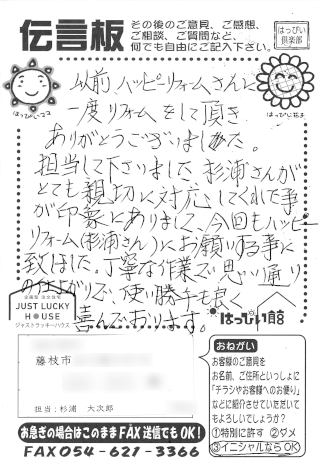 伝言板
その後のご意見、ご感想、
ご相談、ご質問など、
何でも自由にご記入下さい。
はっぴい
倶楽部
はっぴいココ
はっぴい花子
以前ハッピーリフォームさんに
一度リフォームをして頂き
ありがとうございました。
担当して下さいました杉浦さんが
とても親切に対応してくれた事
が印象にありまして、今回もハッピー
リフォーム(杉浦さん)にお願いする事に
致しました。丁寧な作業で思い通り
の仕上がりで、使い勝手も良く
喜んでおります。
JUST LUCKY
HOUSE
ジャストラッキーハウス
はっぴい館
藤枝市
担当:杉浦 大次郎
おねがい
お客様のご意見を
お名前、ご住所といっしょに
「チラシやお客様へのお便り」
などに紹介させていただいて
もよろしいでしょうか?
①特別に許す ②ダメ
③イニシャルなら OK
お急ぎの場合はこのまま FAX 送信でも OK!
FAX 054-627-3366